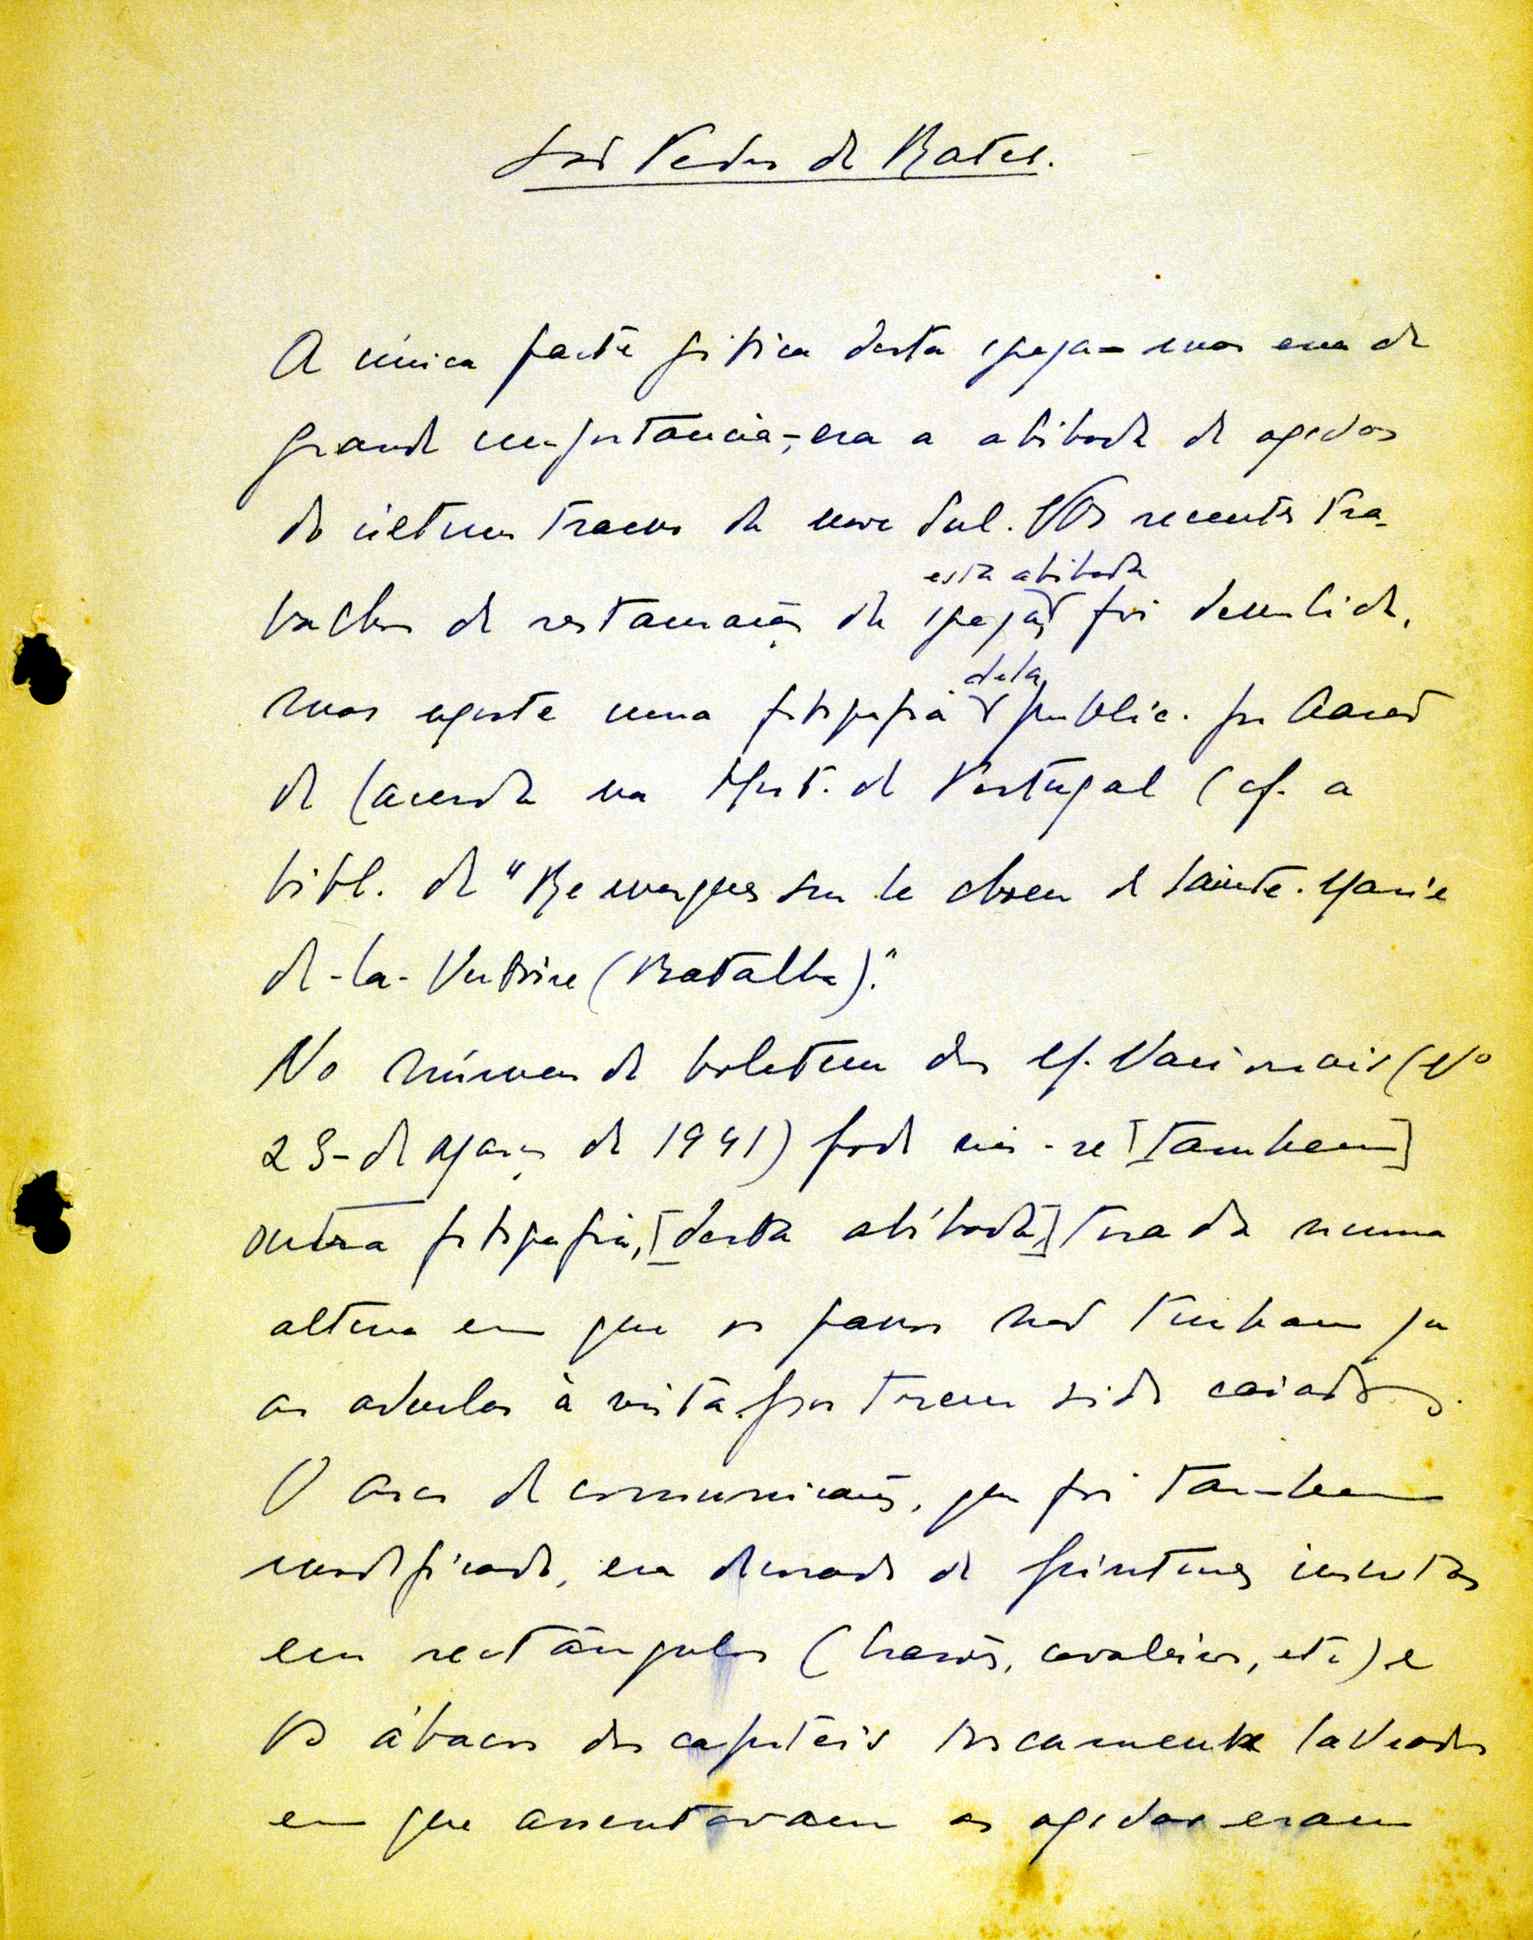 São Pedro de Rates.
A única parte gótica desta igreja – mas era de
grande importancia –, era a abóboda de ogivas
do último tramo da nave sul. Nos recentes tra-
balhos de restauração da igreja, foi demolida,
esta abóboda
mas existe uma fotografia public. por Aarão
dela
de Lacerda na Hist. de Portugal (cf. a
bibl. de "Remarques sur le choeur de Sainte-Marie
de-la-Victoire (Batalha)."
No número do boletim dos M. Nacionais (Nº
23 – de Março de 1941) pode vêr-se [tambem]
outra fotografia, [desta abóboda,] tirada numa
altura em que os panos não tinham
as aduelas à vista por terem sido caiados.
O arco de comunicação, que foi tambem
modificado, era decorado de pinturas inscritas
em rectângulos (brasões, cavaleiros, etc) e
os ábacos dos capitéis toscamente lavrados
em que assentavam as ogivas eram